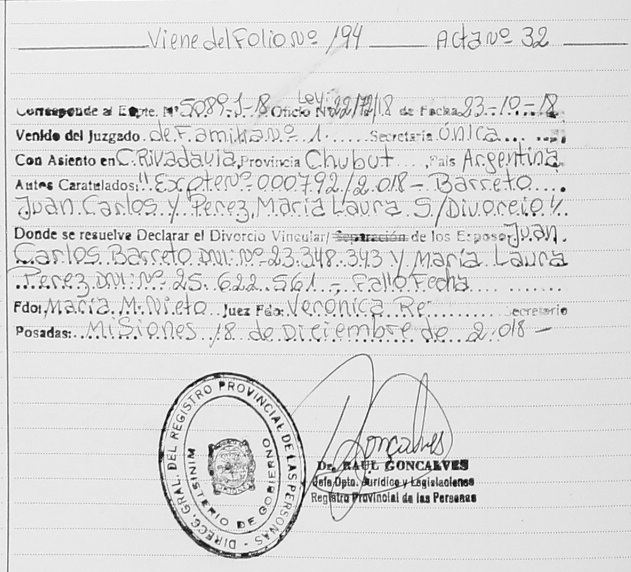 Viene del Folio Nº 194 Acta Nº 32
Corresponde al Expte. Nº 5089-J-18 Oficio Ley: 22172/18 de Fecha 23-10-18
Venido del Juzgado de Familia Nº 1. Secretaría Única
Con Asiento en C. Rivadavia, Provincia Chubut País Argentina
Autos Caratulados: "Expte Nº 000792/2.018 - Barreto
Juan Carlos y Perez, María Laura S/Divorcio".
Donde se resuelve Declarar el Divorcio Vincular/ Separación de los Esposo Juan
Carlos Barreto DNI: Nº 23.348.343 y María Laura
Perez DNI: Nº 25.622.561 - Fallo Fecha
Fdo: María M. Nieto Juez Fdo: Verónica Re Secretario
Posadas: Misiones 18 de Diciembre de 2.018 -
DIRECC. GRAL. DEL REGISTRO PROVINCIAL DE LAS PERSONAS -
MINISTERIO DE GOBIERNO
Gonçalves
Dr. RAUL GONCALVES
Jefe Dpto. Jurídico y Legislaciones
Registro Provincial de las Personas